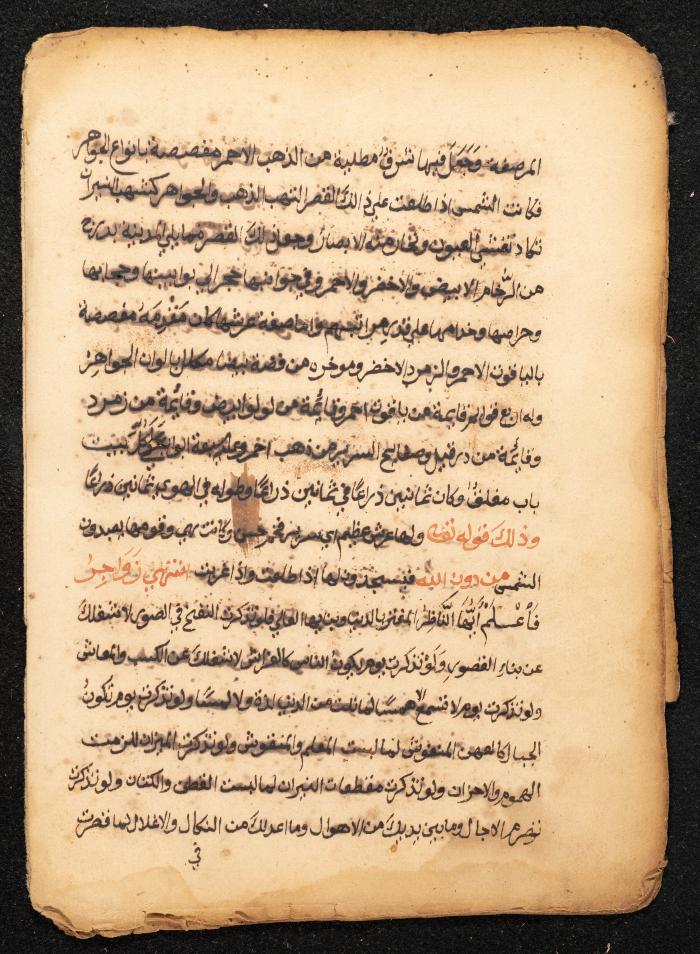 المرصعة وَجَعَلَ فيها شرفً مطلية من الذهب الاحمر مفصصة بانواع الجواهر
فكانت الشمس اذا طلعت على ذالك القصر التهب الذهب والجواهر كتشهب النيران
تكاد تغشى العيون وتحار منه الابصار وجعل لك القصر مما يلي المدينة بدرج
من الرخام الابيض والاخضر والاحمر وفي جوانبها حجر الي بوابينها وحجابها
وحراصها وخدامها على قدر مراتبهم واما صفة عرشها كان مَقْدِمَهُ مفصصة
بالياقوت الاحمر والزمرد الاخضر وموخره من فضة بيضا مكلل بالوان الجواهر
وله اربع قوايم قايمة من ياقوت احمر وقائمة من لولو ابيض وقائمة من زمرد
وقائمة من در وصفايح السرير من ذهب احمر وعليه سبعة ابواب كل بيت
باب مغلق وكان ثمانين ذراعًا في ثمانين ذراعًا وطوله في الهوى ثمانين ذراعًا
وذلك قوله تعا ولها عرش عظيم اي سرير فخر حسن وكانت هي وقومها يعبدون
الشمس من دون الله فيسجدون لها اذا طلعت واذا غربت انتهي
فَاعْلَمْ أَيُّهَا النَّاظِرُ المغتر بالدنيا وبنايها العالي فلو تذكرت النفخ في الصور لاشغلك
عن بناء القصور وَلَوْ تذكرت يوم يكون الناس كالفراش لاشغلك عن الكسب والمعاش
ولو تذكرت يوم لا تسمع الا همسًا لما نلت من الدنيا لذة ولا لمسًا ولو تذكرت يوم تكون
الجبال كالعهن المنفوش لما لبست المعلم والمنقوش ولو تذكرت الميزان للزمت
الهموم والاحزان ولو تذكرت مقطعات النيران لما لبست القطن والكتان ولو تذكرت
تصرم الاجال وما بين يديك من الاهوال وما اعد لك من النكال والاغلال لما قصرت
في